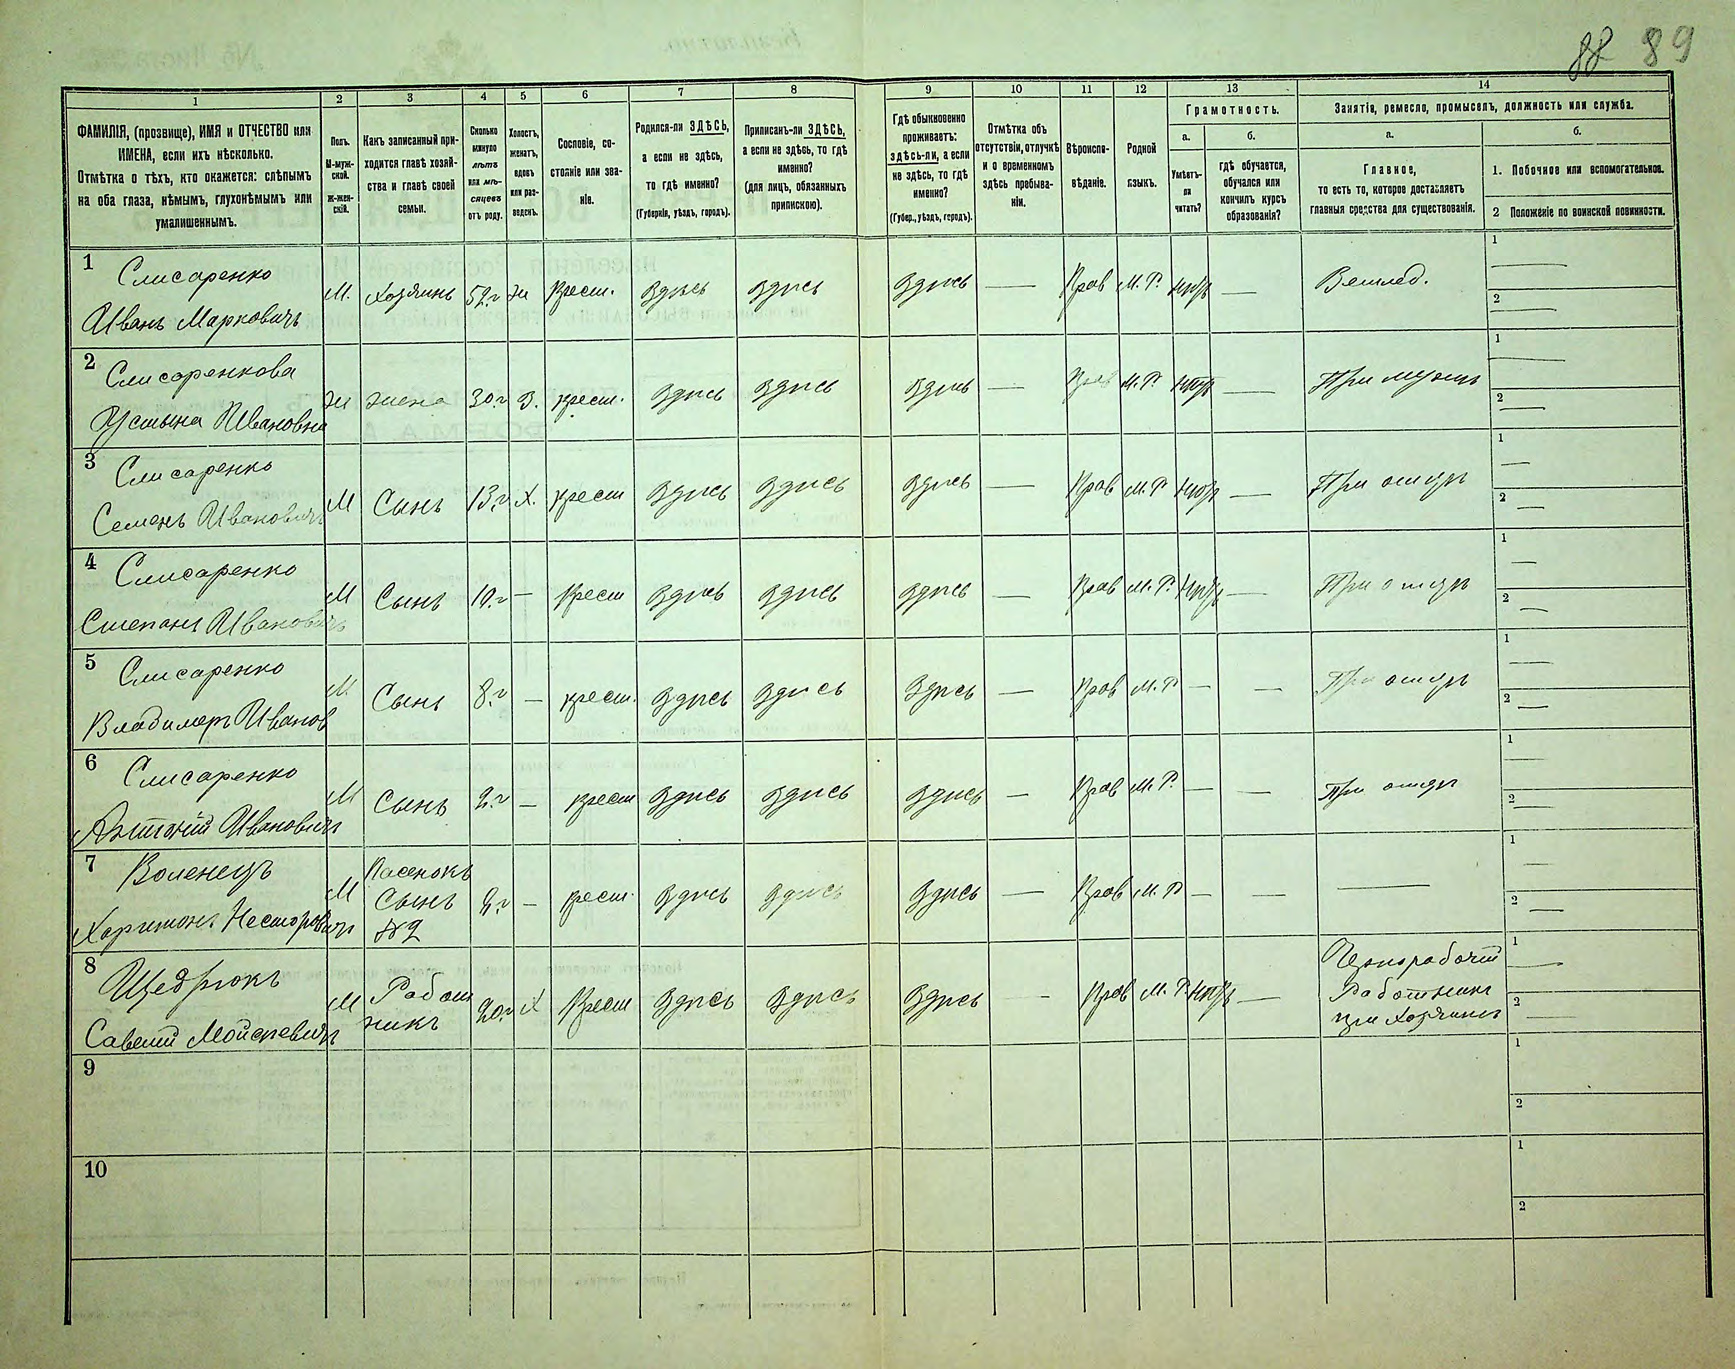 88 89
1 2 3 4 5 6 7 8 9 10 11 12 13 14
ФАМИЛІЯ, (прозвище), ИМЯ и ОТЧЕСТВО или ИМЕНА, если ихъ нѣсколько.
Отмѣтка о тѣхъ, кто окажется: слѣпымъ на оба глаза, нѣмымъ, глухонѣмымъ или умалишеннымъ.
Полъ.
М-мужской.
Ж-женскій.
Какъ записанный приходится главѣ хозяйства и главѣ своей семьи.
Сколько минуло лѣтъ или мѣсяцевъ отъ роду.
Холостъ, женатъ, вдовъ или разведенъ.
Сословіе, состояніе или званіе.
Родился-ли ЗДѢСЬ, а если не здѣсь, то гдѣ именно?
(Губернія, уѣздъ, городъ).
Приписанъ-ли ЗДѢСЬ, а если не здѣсь, то гдѣ именно?
(для лицъ, обязанныхъ припискою).
Гдѣ обыкновенно проживаетъ: здѣсь-ли, а если не здѣсь, то гдѣ именно?
(Губер., уѣздъ, городъ).
Отмѣтка объ отсутствіи, отлучкѣ и о временномъ здѣсь пребываніи.
Вѣроисповѣданіе.
Родной языкъ.
Грамотность.
а.
Умѣетъ-ли читать?
б.
гдѣ обучается, обучался или кончилъ курсъ образованія?
Занятія, ремесло, промыселъ, должность или служба.
а.
Главное,
то есть то, которое доставляетъ главныя средства для существованія.
б.
1. Побочное или вспомогательное.
2 Положеніе по воинской повинности.
1 Слисаренко Иванъ Марковичъ М. Хозяинъ 52 г Ж Крест. Здѣсь Здѣсь Здѣсь — Прав М. Р. нѣтъ — Землед. 1 — 2 —
2 Слисаренкова Устына Ивановна Ж жена 30 г З. крест. Здѣсь Здѣсь Здѣсь — Прав М. Р. нѣтъ — При мужѣ 1 — 2 —
3 Слисаренко Семенъ Ивановичъ М Сынъ 13 г Х. крест Здѣсь Здѣсь Здѣсь — Прав М. Р нѣтъ — При отцѣ 1 — 2 —
4 Слисаренко Степанъ Ивановичъ М Сынъ 10 г — Крест Здѣсь Здѣсь Здѣсь — Прав М. Р. нѣтъ — При отцѣ 1 — 2 —
5 Слисаренко Владимеръ Иванов М Сынъ 8 г — крест. Здѣсь Здѣсь Здѣсь — Прав М. Р — — При отцѣ 1 — 2 —
6 Слисаренко Антоній Ивановичъ М Сынъ 2 г — крест Здѣсь Здѣсь Здѣсь — Прав М. Р. — — При отцѣ 1 — 2 —
7 Воленецъ Харитонъ Несторовичъ М Пасенокъ Сынъ №2 — крест. Здѣсь Здѣсь Здѣсь — Прав М. Р — — — 1 2 —
8 Щедрюкъ Савелій Мойсѣевичъ М Работникъ 20 г Х Крест Здѣсь Здѣсь Здѣсь — Прав М. Р нѣтъ — Чернорабочій Работникъ при Хозяинѣ 1 — 2 —
9 1 2
10 1 2